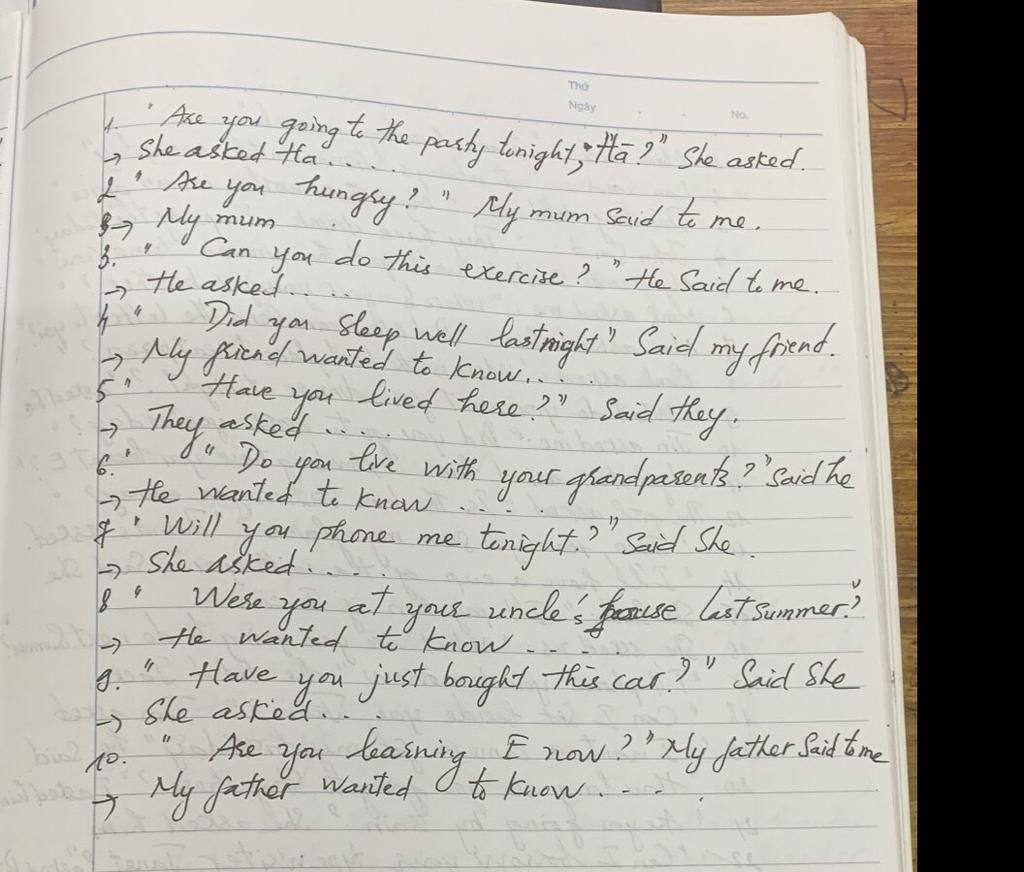 Thứ
Ngày No.
1. " Are you going to the party tonight, Hà ?" She asked.
→ She asked Ha....
2 " Are you hungry ? " My mum said to me.
→ My mum
3. " Can you do this exercise ? " He Said to me.
→ He asked.....
4 " Did you sleep well lastnight" Said my friend.
→ My friend wanted to know....
5 " Have you lived here ?" Said they.
→ They asked .....
6. " Do you live with your grandparents ? " Said he
→ He wanted to know ....
7 " Will you phone me tonight ? " Said She.
→ She asked.....
8 " Were you at your uncle's house last summer ?"
→ He wanted to know ....
9. " Have you just bought this car ? " Said She
→ She asked....
10. " Are you learning E now ? " My father Said to me
→ My father wanted to know ....